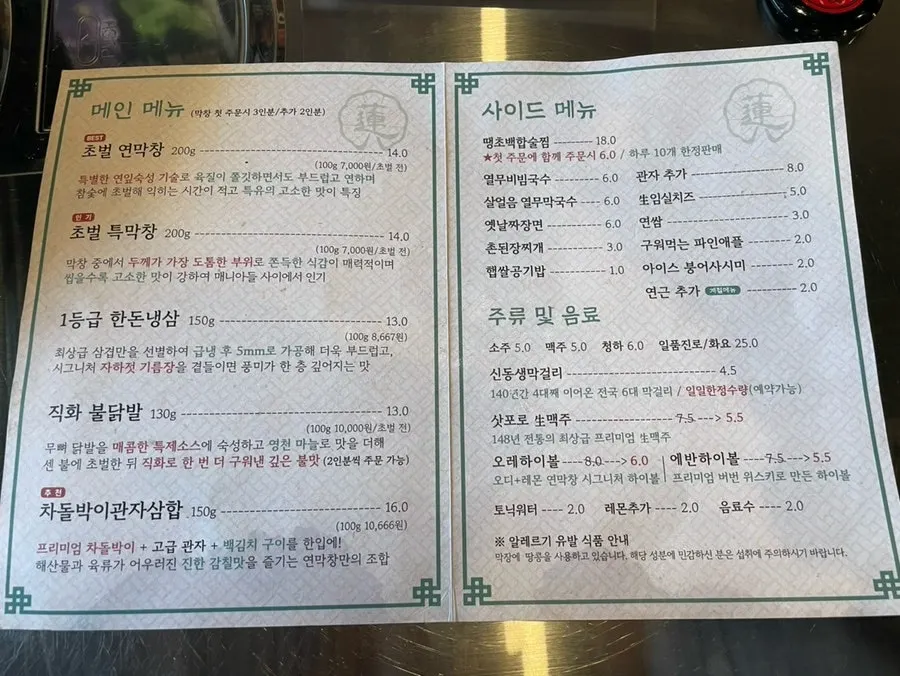 메인 메뉴 (막창 첫 주문시 3인분/추가 2인분)
BEST
초벌 연막창 200g 14.0
(100g 7,000원/초벌 전)
특별한 연잎숙성 기술로 육질이 쫄깃하면서도 부드럽고 연하며
참숯에 초벌해 익히는 시간이 적고 특유의 고소한 맛이 특징
인기
초벌 특막창 200g 14.0
(100g 7,000원/초벌 전)
막창 중에서 두께가 가장 도톰한 부위로 쫀득한 식감이 매력적이며
씹을수록 고소한 맛이 강하여 매니아들 사이에서 인기
1등급 한돈냉삼 150g 13.0
(100g 8,667원)
최상급 삼겹만을 선별하여 급냉 후 5mm로 가공해 더욱 부드럽고,
시그니처 자하젓 기름장을 곁들이면 풍미가 한 층 깊어지는 맛
직화 불닭발 130g 13.0
(100g 10,000원/초벌 전)
무뼈 닭발을 매콤한 특제소스에 숙성하고 영천 마늘로 맛을 더해
센 불에 초벌한 뒤 직화로 한 번 더 구워낸 깊은 불맛 (2인분씩 주문 가능)
추천
차돌박이관자삼합 150g 16.0
(100g 10,666원)
프리미엄 차돌박이 + 고급 관자 + 백김치 구이를 한입에!
해산물과 육류가 어우러진 진한 감칠맛을 즐기는 연막창만의 조합
蓮
사이드 메뉴
땡초백합술찜 18.0
★첫 주문에 함께 주문시 6.0 / 하루 10개 한정판매
열무비빔국수 6.0
살얼음 열무막국수 6.0
옛날짜장면 6.0
촌된장찌개 3.0
햅쌀공기밥 1.0
관자 추가 8.0
生임실치즈 5.0
연쌈 3.0
구워먹는 파인애플 2.0
아이스 붕어사시미 2.0
연근 추가 계절메뉴 2.0
주류 및 음료
소주 5.0 맥주 5.0 청하 6.0 일품진로/화요 25.0
신동생막걸리 4.5
140년간 4대째 이어온 전국 6대 막걸리 / 일일한정수량(예약가능)
삿포로 生맥주 7.5 --> 5.5
148년 전통의 최상급 프리미엄 生맥주
오레하이볼 8.0 --> 6.0
오디+레몬 연막창 시그니처 하이볼
에반하이볼 7.5 --> 5.5
프리미엄 버번 위스키로 만든 하이볼
토닉워터 2.0 레몬추가 2.0 음료수 2.0
※ 알레르기 유발 식품 안내
막장에 땅콩을 사용하고 있습니다. 해당 성분에 민감하신 분은 섭취에 주의하시기 바랍니다.
蓮